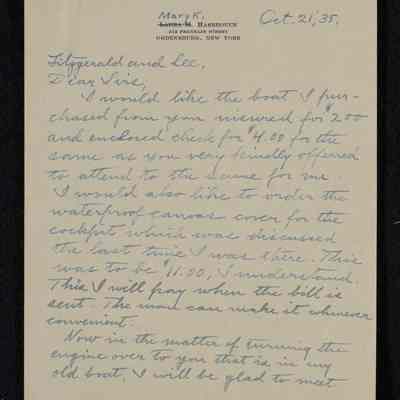 Mary K.
Laura M. Hasbrouck
212 Franklin Street
Ogdensburg, New York
Oct. 21, '35.
Fitzgerald and Lee,
Dear Sirs,
I would like the boat I pur-
chased from you insured for $200
and enclosed check for $4.00 for the
same as you very kindly offered
to attend to the same for me.
I would also like to order the
waterproof canvas cover for the
cockpit which was discussed
the last time I was there. This
was to be $11.00, I understand.
This I will pay when the bill is
sent. The man can make it whenever
convenient.
Now in the matter of turning the
engine over to you that is in my
old boat, I will be glad to meet